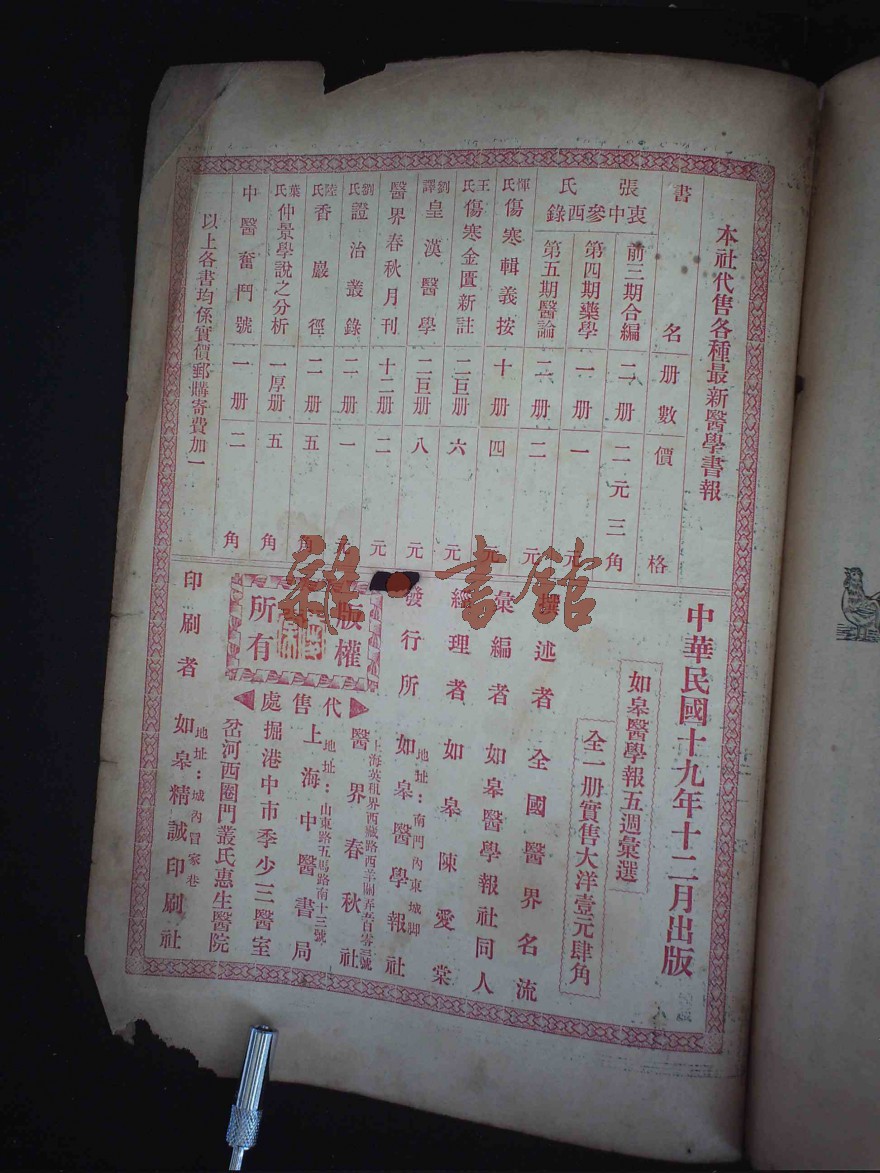 本社代售各種最新醫學書報
書名 册數 價格
張氏衷中參西錄
前三期合編 二册 二元三角
第四期藥學 一册 一元
第五期醫論 二册 二元
惲氏傷寒輯義按 十册 四元
王氏傷寒金匱新註 二巨册 六元
劉譯皇漢醫學 二巨册 八元
醫界春秋月刊 十二册 二元
劉氏證治叢錄 二册 一元
陸氏香巖徑 二册 五角
葉氏仲景學說之分析 一厚册 五角
中醫奮鬥號 一册 二角
以上各書均係實價郵購寄費加一
中華民國十九年十二月出版
如皋醫學報五週彙選
全一册實售大洋壹元肆角
撰述者 全國醫界名流
彙編者 如皋醫學報社同人
經理者 如皋陳愛棠
發行所 如皋醫學報社
地址：南門內東城脚
版權所有
代售處
上海英租界西藏路西羊關弄
醫界春秋社
地址：山東路五馬路南十三號
上海中醫書局
掘港中市季少三醫室
岔河西圈門叢氏惠生醫院
印刷者 如皋精誠印刷社
地址：城內冒家巷
雜書館